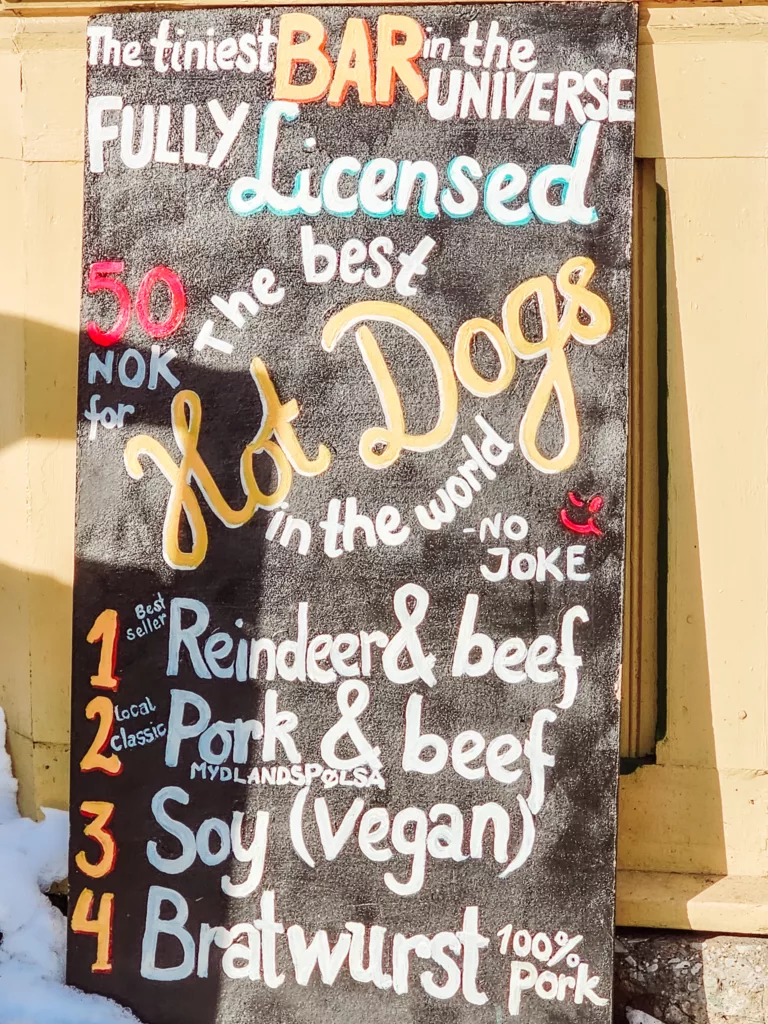 The tiniest BAR in the
UNIVERSE
FULLY
Licensed
The best
50
NOK
for
Hot Dogs
in the world
-NO
JOKE
1 Best
seller Reindeer & beef
2 Local
classic Pork & beef
MYDLANDSPØLSA
3 Soy (vegan)
4 Bratwurst 100%
Pork